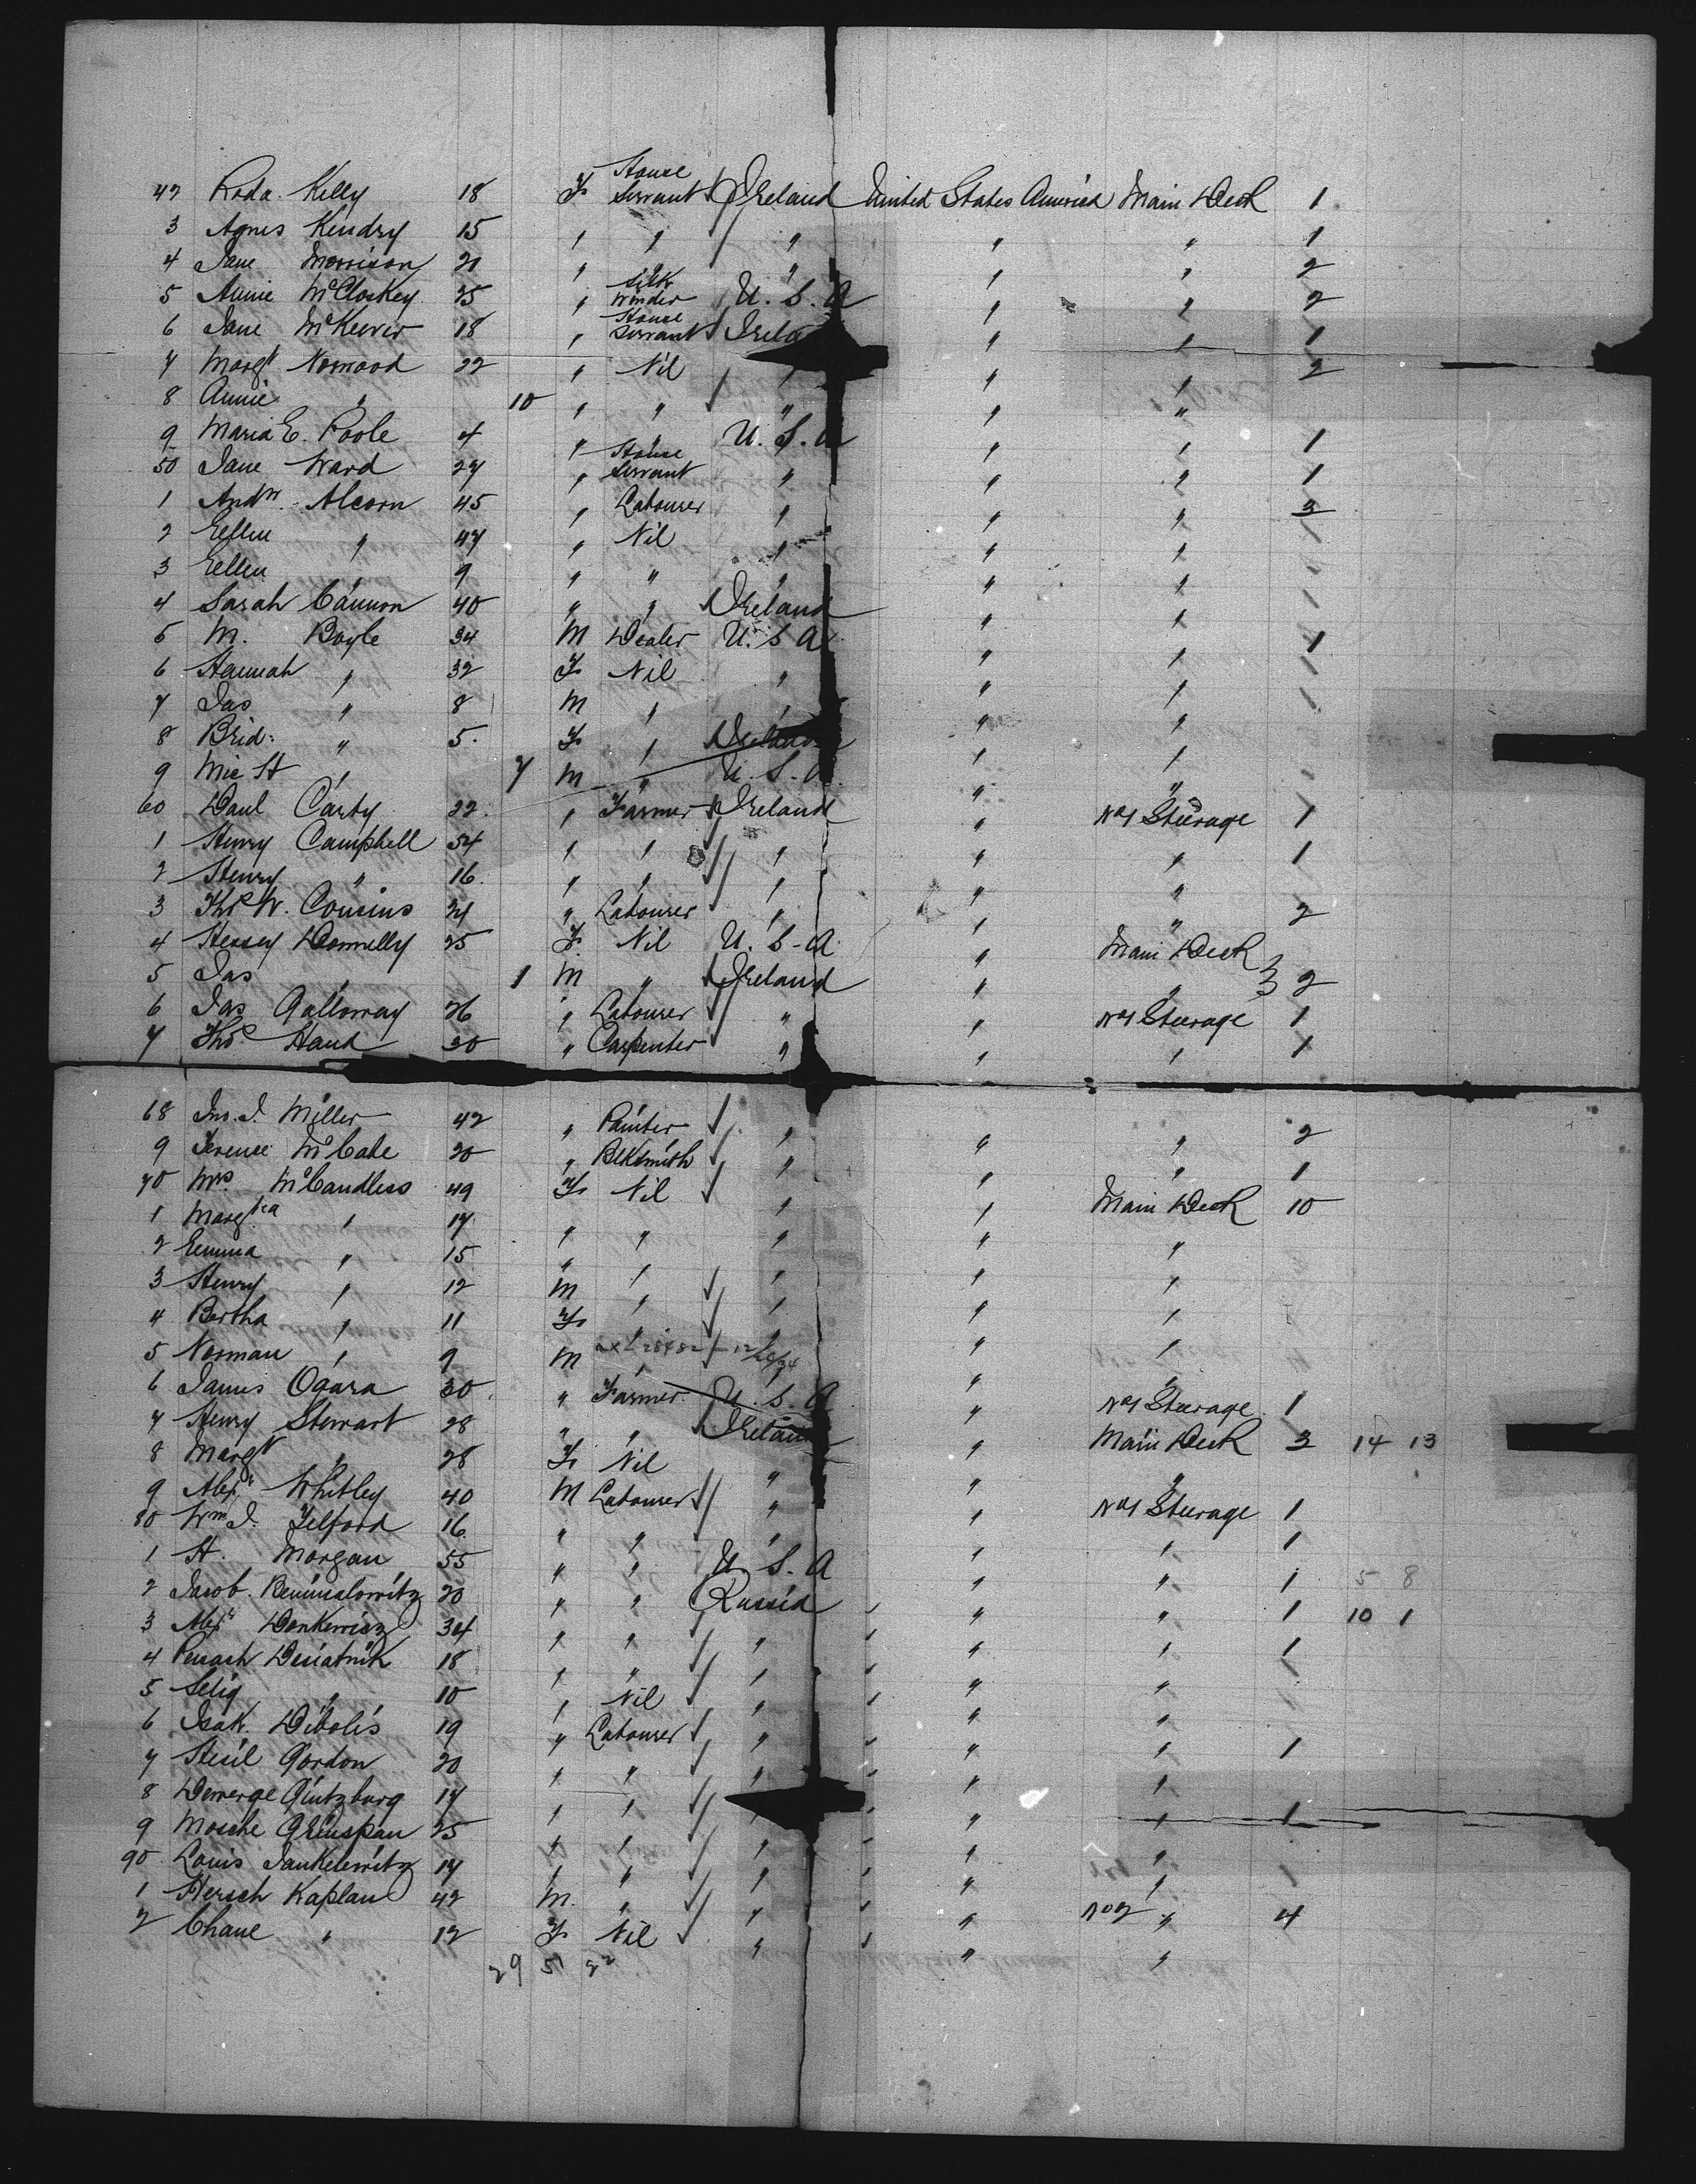 42 Roda Kelly 18 F House Servant Ireland United States America Main Deck 1
3 Agnes Kendry 15 " " " " " 1
4 Jane Morrison 21 " " " " " 2
5 Annie McCloskey 25 " Silk Winder U.S.A " " 2
6 Jane McKeever 18 " House Servant Irela " " 1
7 Margt Normood 22 " Nil " " " 2
8 Annie " 10 " " " " "
9 Maria E. Poole 4 " " U.S.A " " 1
50 Jane Ward 27 " House Servant " " " 1
1 Andw Alcorn 45 " Labourer " " " 3
2 Ellen " 47 " Nil " " "
3 Ellen " 9 " " " " "
4 Sarah Cannon 40 " " Ireland " "
5 M. Boyle 34 M Dealer U.S.A " " 1
6 Hannah " 32 F Nil " " "
7 Jas " 8 M " " " "
8 Brid: " 5 F " Ireland " "
9 Mic H " 7 M " U.S.A " "
60 Danl Carty 22 " Farmer Ireland " No 1 Steerage 1
1 Henry Campbell 54 " " " " " 1
2 Henry " 16 " " " " "
3 Thos W. Cousins 24 " Labourer " " " 2
4 Hessey Donnelly 25 F Nil U.S.A " Main Deck
5 Jas " 1 M " Ireland " " 2
6 Jas Galloway 26 " Labourer " " No 1 Steerage 1
7 Thos Hand 30 " Carpenter " " " 1
68 Jno. J. Miller 42 " Painter " " " 2
9 Terence McCabe 20 " Blksmith " " " 1
70 Mrs McCandless 49 F Nil " " Main Deck 10
1 Margta " 17 " " " " "
2 Emma " 15 " " " " "
3 Henry " 12 M " " " "
4 Bertha " 11 F " " " "
5 Norman " 9 M " " "
6 James Ogara 30 " Farmer U.S.A " No 1 Steerage 1
7 Henry Stewart 28 " " Ireland " Main Deck 3 14 13
8 Margt " 28 F Nil " " "
9 Alexr Whitley 40 M Labourer " " No 1 Steerage 1
80 Wm J. Telford 16 " " " " " 1
1 H. Morgan 55 " " U.S.A " " 1 5 8
2 Jacob 20 " " Russia " " 1 10 1
3 Alexr Donkewicz 34 " " " " " 1
4 Desiatnik 18 " " " " "
5 Selig " 10 " Nil " " "
6 Isak Dibolis 19 " Labourer " " " 1
7 Hesil Gordon 20 " " " " "
8 Gintzburg 17 " " " " " 1
9 Mosche Grinspan 25 " " " " "
90 Louis Jankelewitz 17 " " " " "
1 Hersch Kaplan 42 M " " " No 2 " 4
2 Chane " 12 F Nil " " "
29 51 22